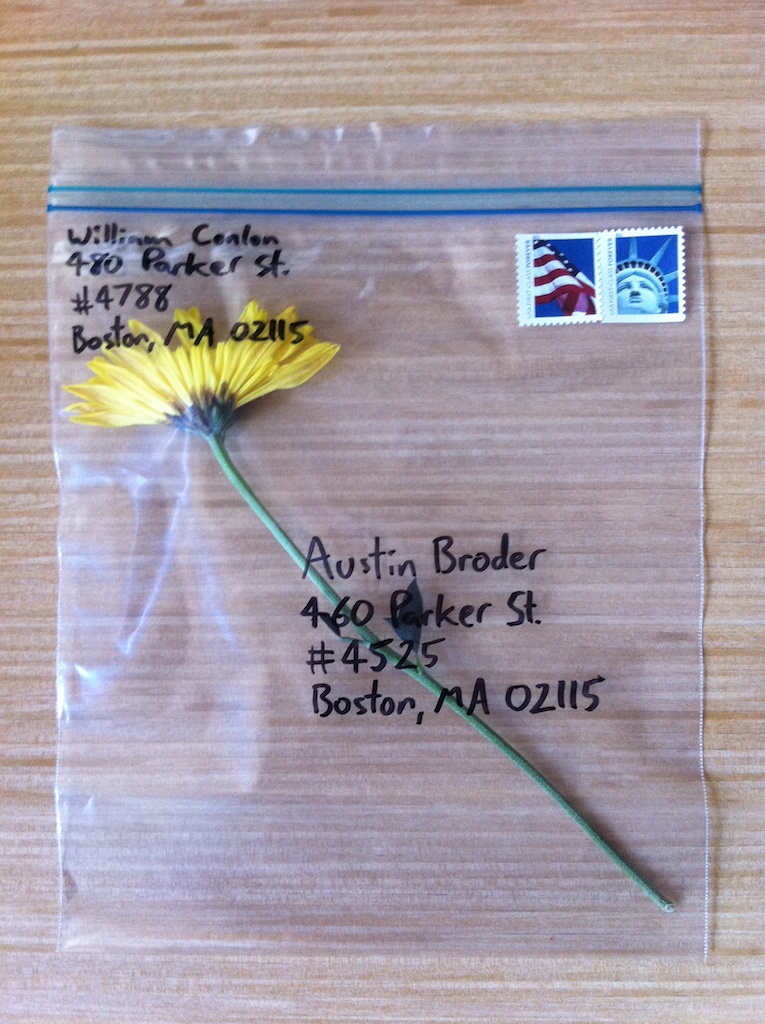 William Conlon
480 Parker St.
#4788
Boston, MA 02115
USA FIRST-CLASS FOREVER
USA FIRST-CLASS FOREVER
Austin Broder
460 Parker St.
#4525
Boston, MA 02115